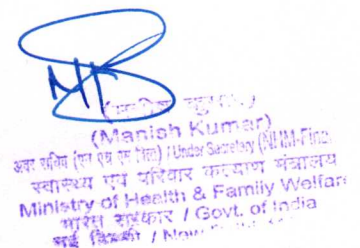 (Manish Kumar)
अवर सचिव (एन एच एम वित्त) / Under Secretary (NHM-Fin.
स्वास्थ्य एवं परिवार कल्याण मंत्रालय
Ministry of Health & Family Welfare
भारत सरकार / Govt. of India
नई दिल्ली / New